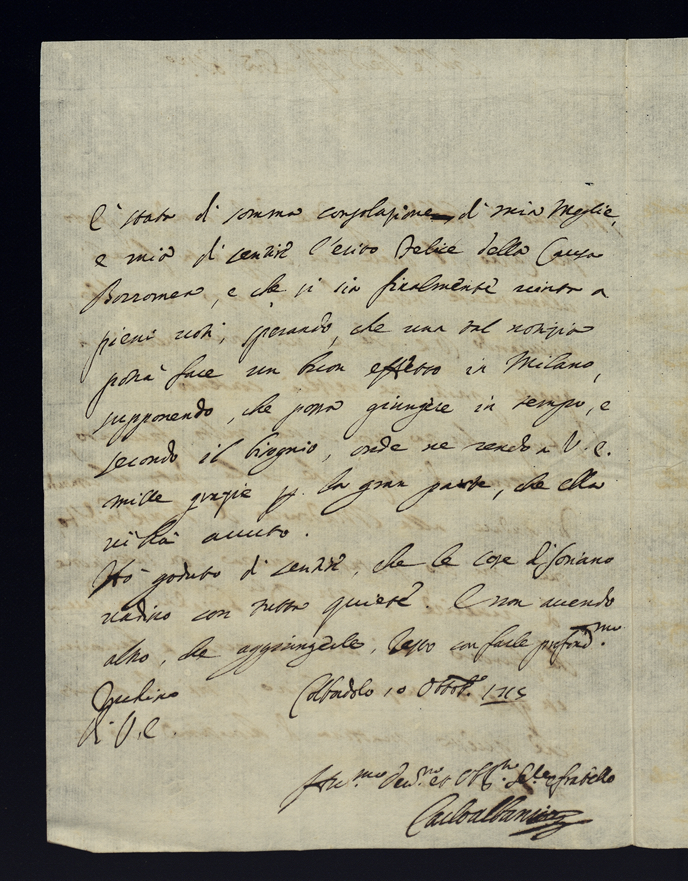 È stata di somma consolazione di mia Moglie,
e mia di sentire l'esito felice della Causa
Borromea, e che si sia finalmente vinta a
pieni voti, sperando, che una tal notizia
potrà fare un buon effetto in Milano,
supponendo, che possa giungere in tempo, e
secondo il bisogno, onde ne rendo a V. E.
mille grazie p. la gran parte, che ella
vi ha avuto.
Hò goduto di sentire, che le cose di Soriano
vadino con tutta quiete. E non avendo
altro, che aggiungerle, resto con farle profond.mo
Inchino
di V. E
10 Ottob.e 1715
Hu.mo Dev.mo et Obb.mo fratello
Carlo Albani